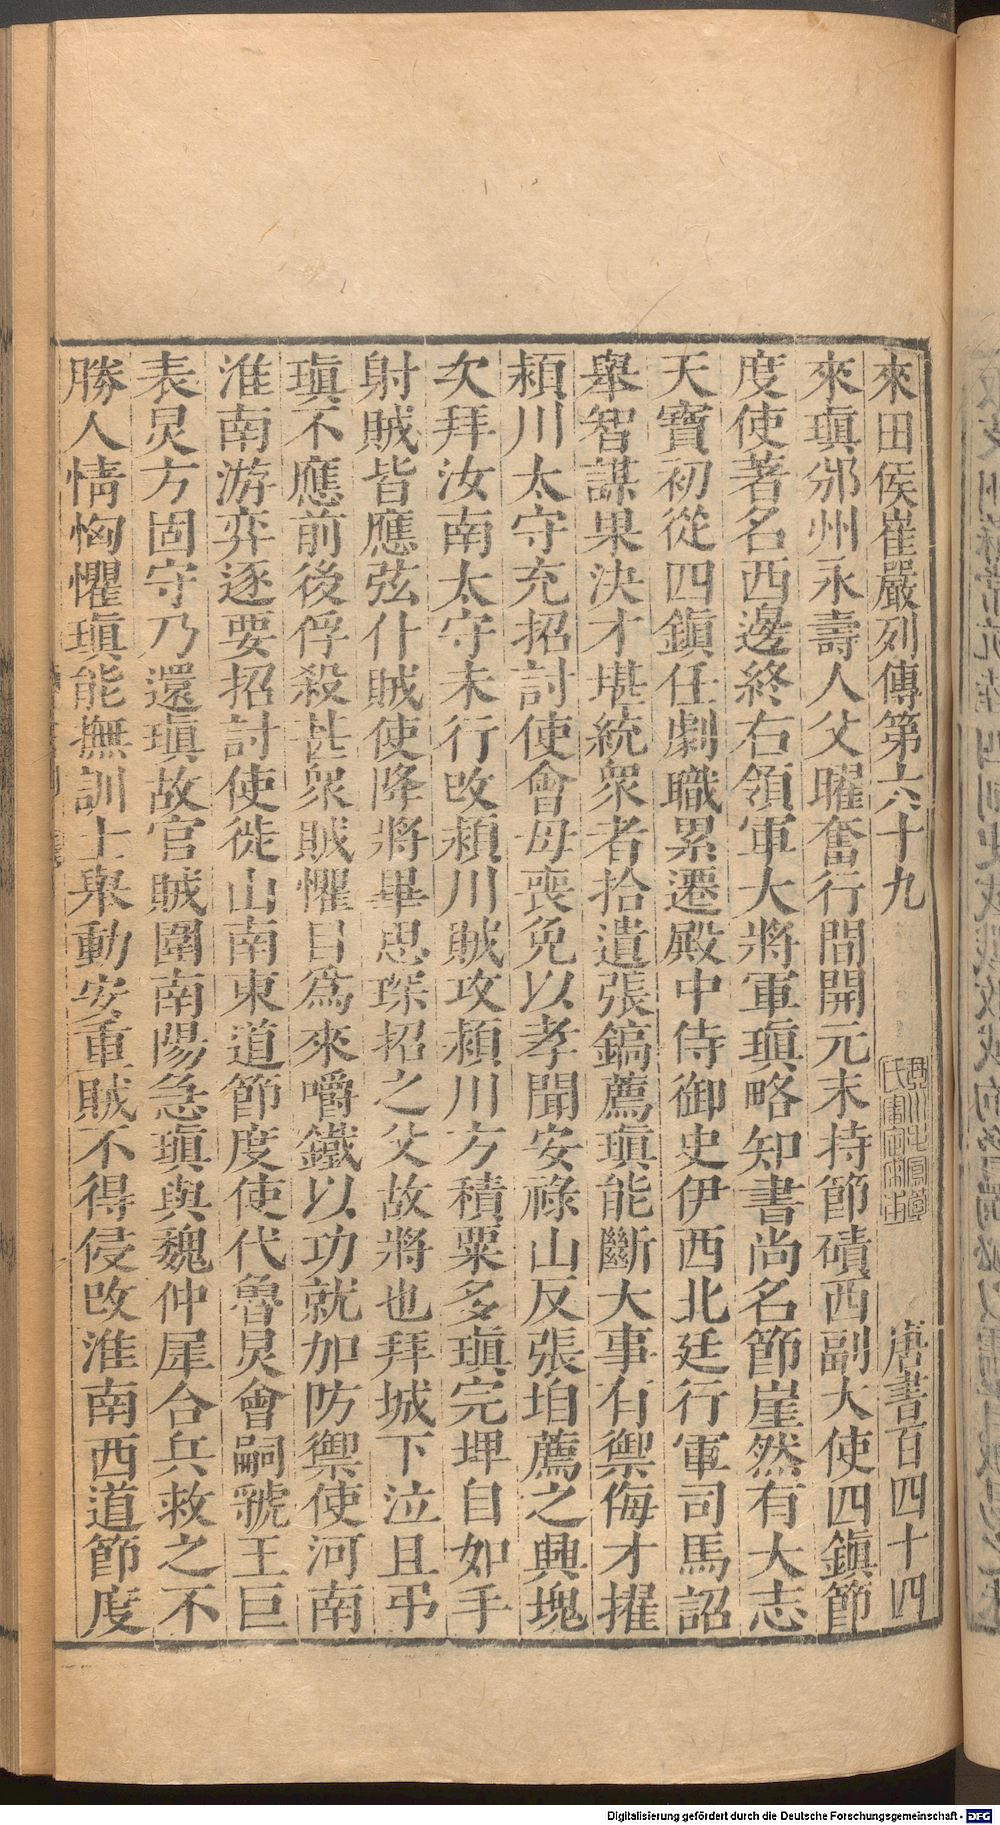 來田侯崔嚴列傳第六十九　唐書百四十四
來瑱邠州永壽人父曜奮行間開元末持節磧西副大使四鎮節
度使著名西邊終右領軍大將軍瑱略知書尚名節崖然有大志
天寶初從四鎮任劇職累遷殿中侍御史伊西北廷行軍司馬詔
舉智謀果決才堪統衆者拾遺張鎬薦瑱能斷大事有禦侮才擢
潁川太守充招討使會母喪免以孝聞安祿山反張垍薦之興塊
次拜汝南太守未行改潁川賊攻潁川方積粟多瑱完埤自如手
射賊皆應弦仆賊使降將畢思琛招之父故將也拜城下泣且弔
瑱不應前後俘殺甚衆賊懼目爲來嚼鐵以功就加防禦使河南
淮南游弈逐要招討使徙山南東道節度使代魯炅會嗣虢王巨
表炅方固守乃還瑱故官賊圍南陽急瑱與魏仲犀合兵救之不
勝人情恟懼瑱能撫訓士舉動安重賊不得侵改淮南西道節度
Digitalisierung gefördert durch die Deutsche Forschungsgemeinschaft - DFG